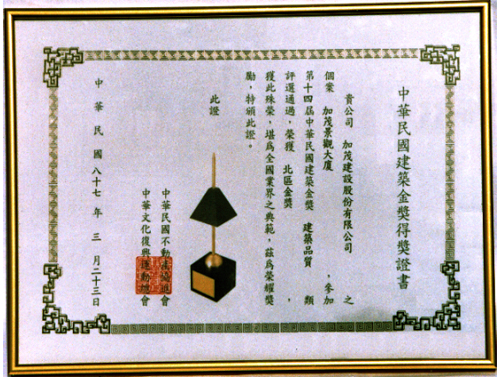 中華民國建築金獎得獎證書
貴公司 加茂建設股份有限公司 之
個案 加茂景觀大廈 ，參加
第十四屆中華民國建築金獎 建築品質 類
評選通過，榮獲 北區金獎 ，
獲此殊榮，堪為全國業界之典範，茲為榮耀獎
勵，特頒此證。
此證
中華民國不動產協進會
中華文化復興運動總會
中華民國八十七年三月二十三日